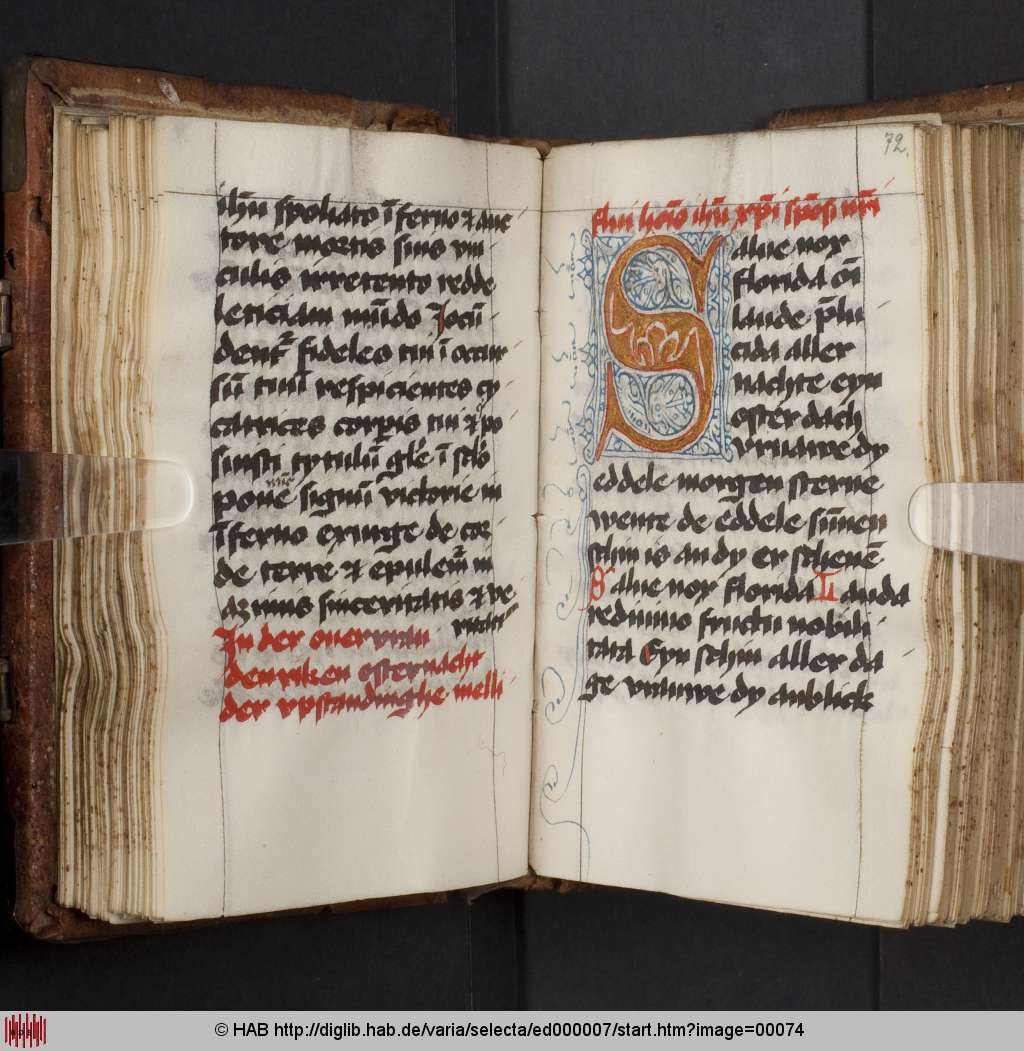 ihū spoliato īferno ⁊ auc
tore mortis suis vin
culis irretento redde
leticiam mūdo Jocū
dent̄ fideles tui ī occur
sū tuū respicientes cy
catrices corp̄is tui ⁊ p̄o
siusti tytulū gl̄e ī
ponē signū victorie in
īferno exurge de cor
de terre ⁊ epulem̄ in
azimis sinceritatis ⁊ ve
ritatis
In der ouervrau
denriken osternacht
der vpstandinghe melli
flui ihū xp̄i
Salue nox
florida
laude p̄lu
cida aller
nachte eyn
oster dach
vruawe dy
eddele morgen sterne
wente de eddele sūnen
schin is an dy erschenē
Salue nox florida Lauda
redimino fructu nobili
tata Eyn schin aller da
ge vrauwe dy anblick
72.
© HAB http://diglib.hab.de/varia/selecta/ed000007/start.htm?image=00074